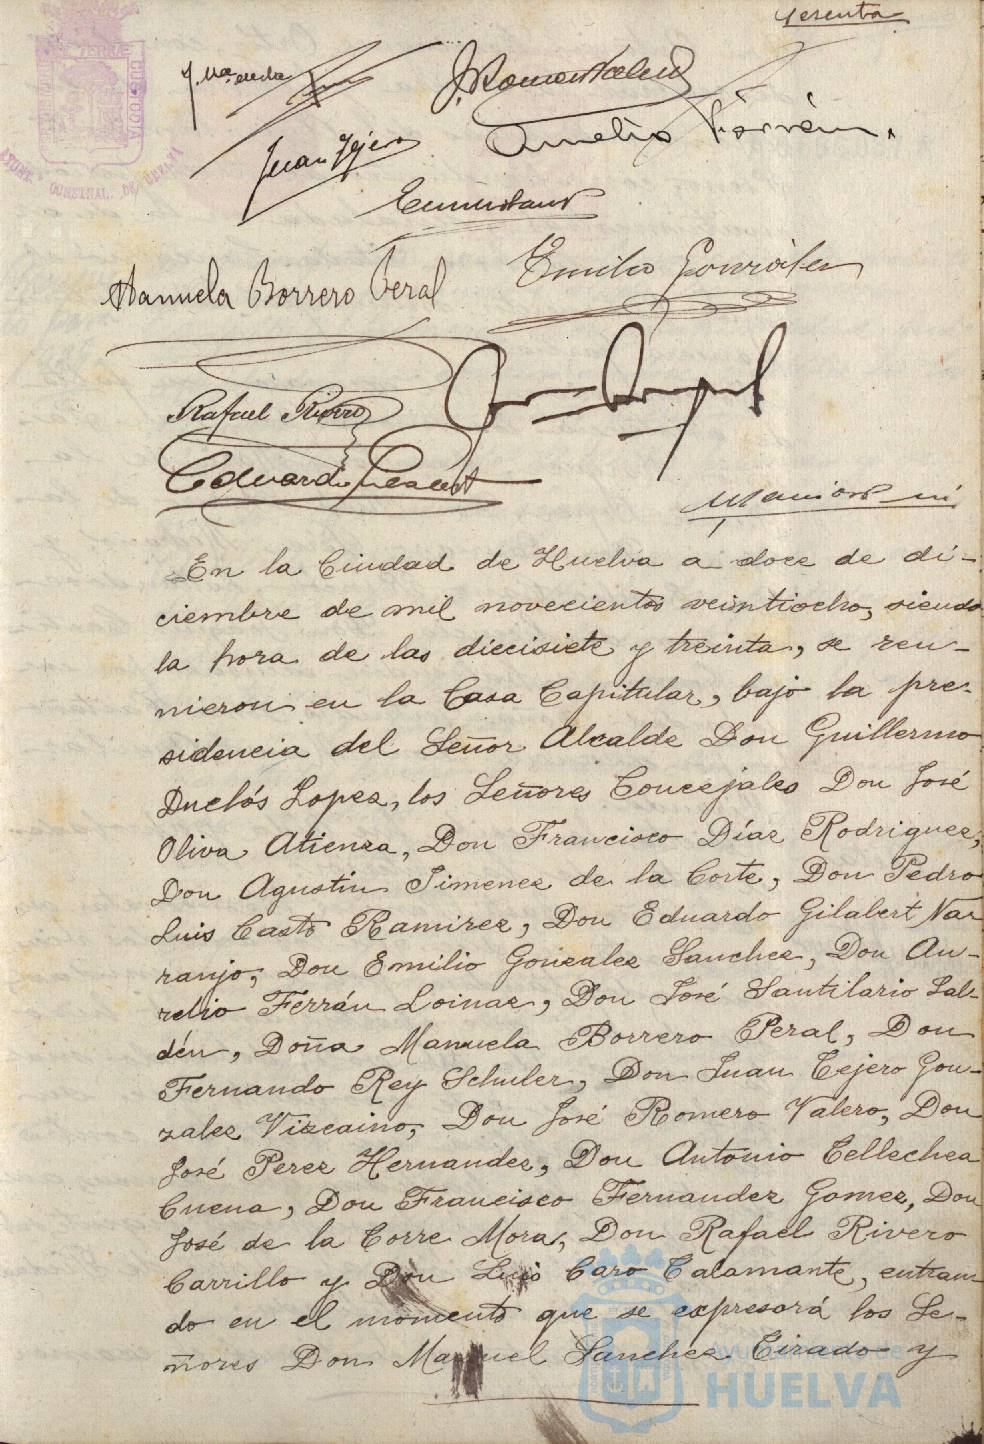 sesenta
Juan Tejero
Aurelio Ferrán
Emilio González
Manuela Borrero Peral
Rafael Rivero
En la Ciudad de Huelva a doce de di-
ciembre de mil novecientos veintiocho, siendo
la hora de las diecisiete y treinta, se reu-
nieron en la Casa Capitular, bajo la pre-
sidencia del Señor Alcalde Don Guillermo
Duclós Lopez, los Señores Concejales Don José
Oliva Atienza, Don Francisco Díaz Rodriguez,
Don Agustin Jimenez de la Corte, Don Pedro
Luis Casto Ramirez, Don Eduardo Gilabert Na-
ranjo, Don Emilio Gonzalez Sanchez, Don Au-
relio Ferrán Loinaz, Don José Santilario Sal-
dén, Doña Manuela Borrero Peral, Don
Fernando Rey Schuler, Don Juan Tejero Gon-
zalez Vizcaino, Don José Romero Valero, Don
José Perez Hernandez, Don Antonio Tellechea
Cuena, Don Francisco Fernandez Gomez, Don
José de la Torre Mora, Don Rafael Rivero
Carrillo y Don Luis Caro Calamante, entran-
do en el momento que se expresará los Se-
ñores Don Manuel Sanchez Tirado y
Ayuntamiento de
HUELVA